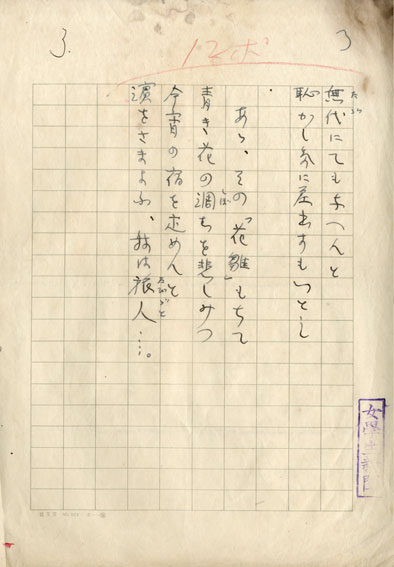 3.
12ポ
3
無代にても与へんと
恥かし気に差出すもいとし
あゝ、その「花雛」もちて
青き花の凋むを悲しみつ
今宵の宿を求めんと
濱をさまよふ、我は旅人…。
たびびと